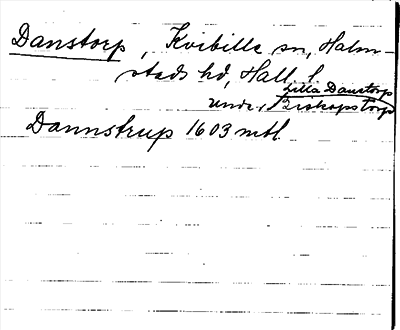 Danstorp, Kvibille sn, Halm-
stads hd, Hall. l.
Lilla Danstorp
under Biskopstorp
Dannstrup 1603 mtl.